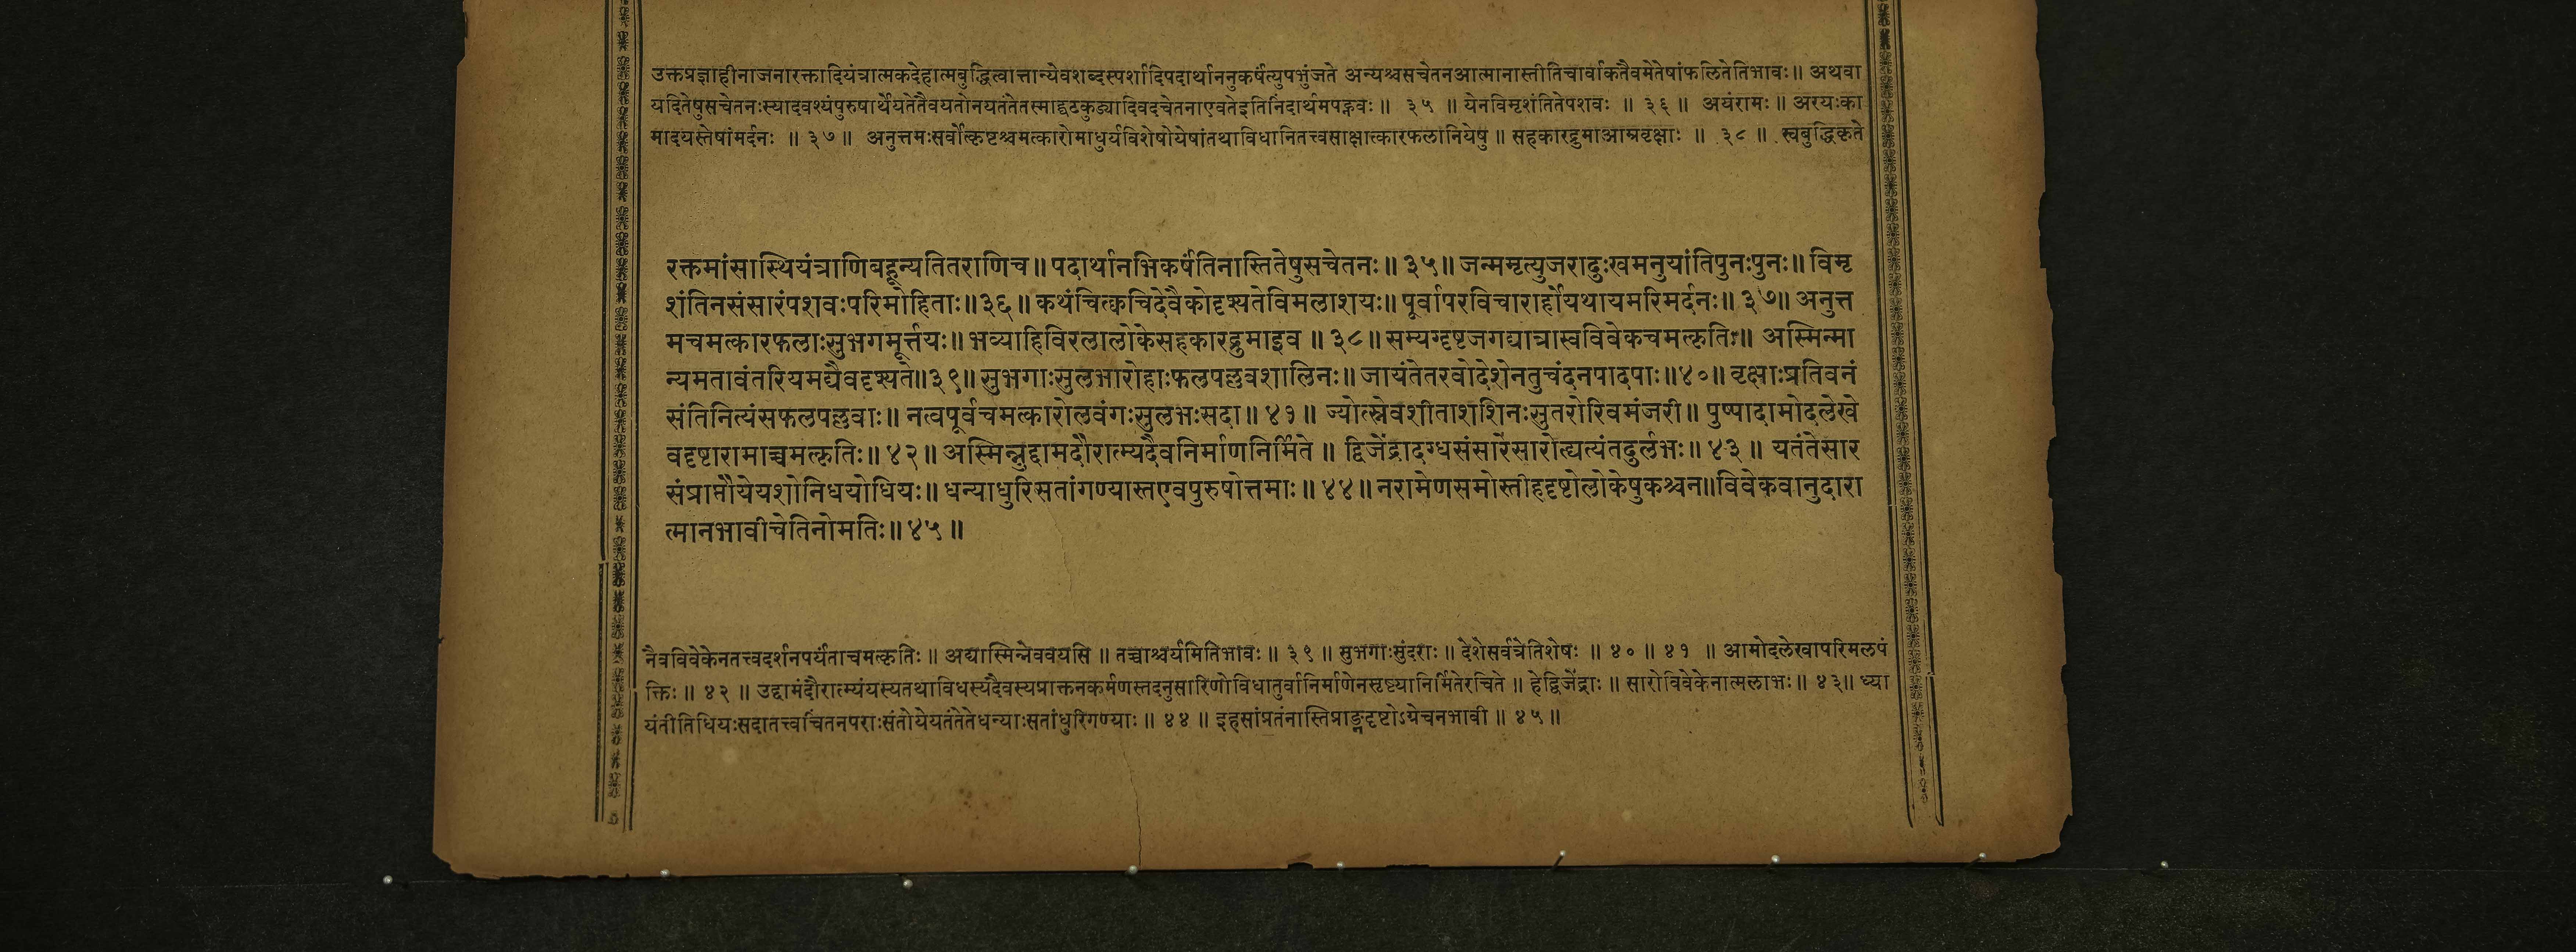 उक्तप्रज्ञाहीनाजनारक्तादियंत्रात्मकदेहात्मबुद्धित्वात्तान्येवशब्दस्पर्शादिपदार्थाननुकर्षंत्युपभुंजते अन्यश्चसचेतनआत्मानास्तीतिचार्वाकतैवमेतेषांफलितेतिभावः॥ अथवा
यदितेषुसचेतनःस्यादवश्यंपुरुषार्थेयतेतैवयतोनयतंतेतस्माद्घटकुड्यादिवदचेतनाएवतेइतिनिंदार्थमपह्नवः॥ ३५ ॥ येनविमृशंतितेपशवः ॥ ३६॥ अयंरामः॥ अरयःका
मादयस्तेषांमर्दनः ॥ ३७॥ अनुत्तमःसर्वोत्कृष्टश्चमत्कारोमाधुर्यविशेषोयेषांतथाविधानितत्त्वसाक्षात्कारफलानियेषु॥ सहकारद्रुमाआम्रवृक्षाः ॥ ३८ ॥ स्वबुद्धिकृते
रक्तमांसास्थियंत्राणिबहून्यतितराणिच॥पदार्थानभिकर्षंतिनास्तितेषुसचेतनः॥३५॥जन्ममृत्युजरादुःखमनुयांतिपुनःपुनः॥विमृ
शंतिनसंसारंपशवःपरिमोहिताः॥३६॥कथंचित्क्वचिदेवैकोदृश्यतेविमलाशयः॥पूर्वापरविचारार्होयथायमरिमर्दनः॥३७॥अनुत्त
मचमत्कारफलाःसुभगमूर्त्तयः॥भव्याहिविरलालोकेसहकारद्रुमाइव॥३८॥सम्यग्दृष्टजगद्यात्रास्वविवेकचमत्कृतिः॥ अस्मिन्मा
न्यमतावंतरियमद्यैवदृश्यते॥३९॥सुभगाःसुलभारोहाःफलपल्लवशालिनः॥जायंतेतरवोदेशेनतुचंदनपादपाः॥४०॥वृक्षाःप्रतिवनं
संतिनित्यंसफलपल्लवाः॥नत्वपूर्वचमत्कारोलवंगःसुलभःसदा॥४१॥ ज्योत्स्नेवशीताशशिनःसुतरोरिवमंजरी॥पुष्पादामोदलेखे
वदृष्टारामाच्चमत्कृतिः॥४२॥अस्मिन्नुद्दामदौरात्म्यदैवनिर्माणनिर्मिते॥द्विजेंद्रादग्धसंसारेसारोह्यत्यंतदुर्लभः॥४३॥ यतंतेसार
संप्राप्तौयेयशोनिधयोधियः॥धन्याधुरिसतांगण्यास्तएवपुरुषोत्तमाः॥४४॥नरामेणसमोस्तीहदृष्टोलोकेषुकश्चन॥विवेकवानुदारा
त्मानभावीचेतिनोमतिः॥४५॥
नैवविवेकेनतत्त्वदर्शनपर्यंताचमत्कृतिः॥ अद्यास्मिन्नेववयसि॥ तच्चाश्चर्यमितिभावः॥ ३९॥ सुभगाःसुंदराः॥ देशेसर्वत्रेतिशेषः ॥ ४०॥ ४१ ॥ आमोदलेखापरिमलपं
क्तिः॥ ४२॥ उद्दामंदौरात्म्यंयस्यतथाविधस्यदैवस्यप्राक्तनकर्मणस्तदनुसारिणोविधातुर्वानिर्माणेनसृष्ट्यानिर्मितेरचिते॥ हेद्विजेंद्राः॥ सारोविवेकेनात्मलाभः॥ ४३॥ ध्या
यंतीतिधियःसदातत्त्वचिंतनपराःसंतोयेयतंतेतेधन्याःसतांधुरिगण्याः॥ ४४॥ इहसांप्रतंनास्तिप्राङ्नदृष्टोऽग्रेचनभावी॥ ४५॥